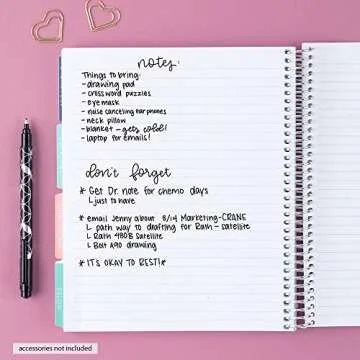 notes:
Things to bring:
- drawing pad
- crossword puzzles
- eye mask
- noise canceling earphones
- neck pillow
- blanket - gets cold!
- laptop for emails!
don't forget
* Get Dr. note for chemo days
L just to have
* email Jenny about 5/14 Marketing-CRANE
L path way to drafting for Rath - satellite
L Rath 480B Satellite
L Bolt A90 drawing
* IT'S OKAY TO REST!*
accessories not included